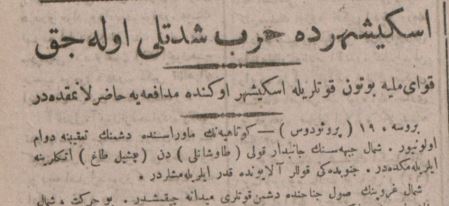 اسكیشهرده حرب شدتلی اوله جق
قوای ملیه بوتون قوتلریله اسكیشهر اوكنده مدافعه یه حاضرلانمقده در
بروسه ، ١٩ ( پروئودوس ) — كوتاهیه نك ماوراسنده دشمنك تعقیبنه دوام
اولنیور . شمال جبهه سنك جانبدار قولی ( طاوشانلی ) دن ( چشیل طاغ ) اتكلرینه
ایلریله مكده در . جنوبده كی قوللر آلایونده قدر ایلریله مشلردر .
شمال غروپنك صول جناحنده دشمن قوتلری میدانه چیقمشدر . بو حركت ، شمال